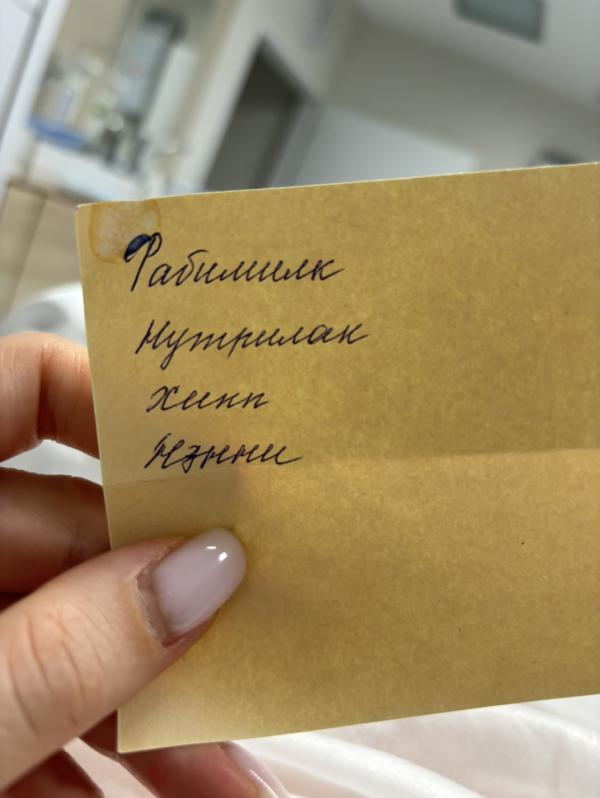 Рабимилк
Нутрилак
Хипп
Нэнни